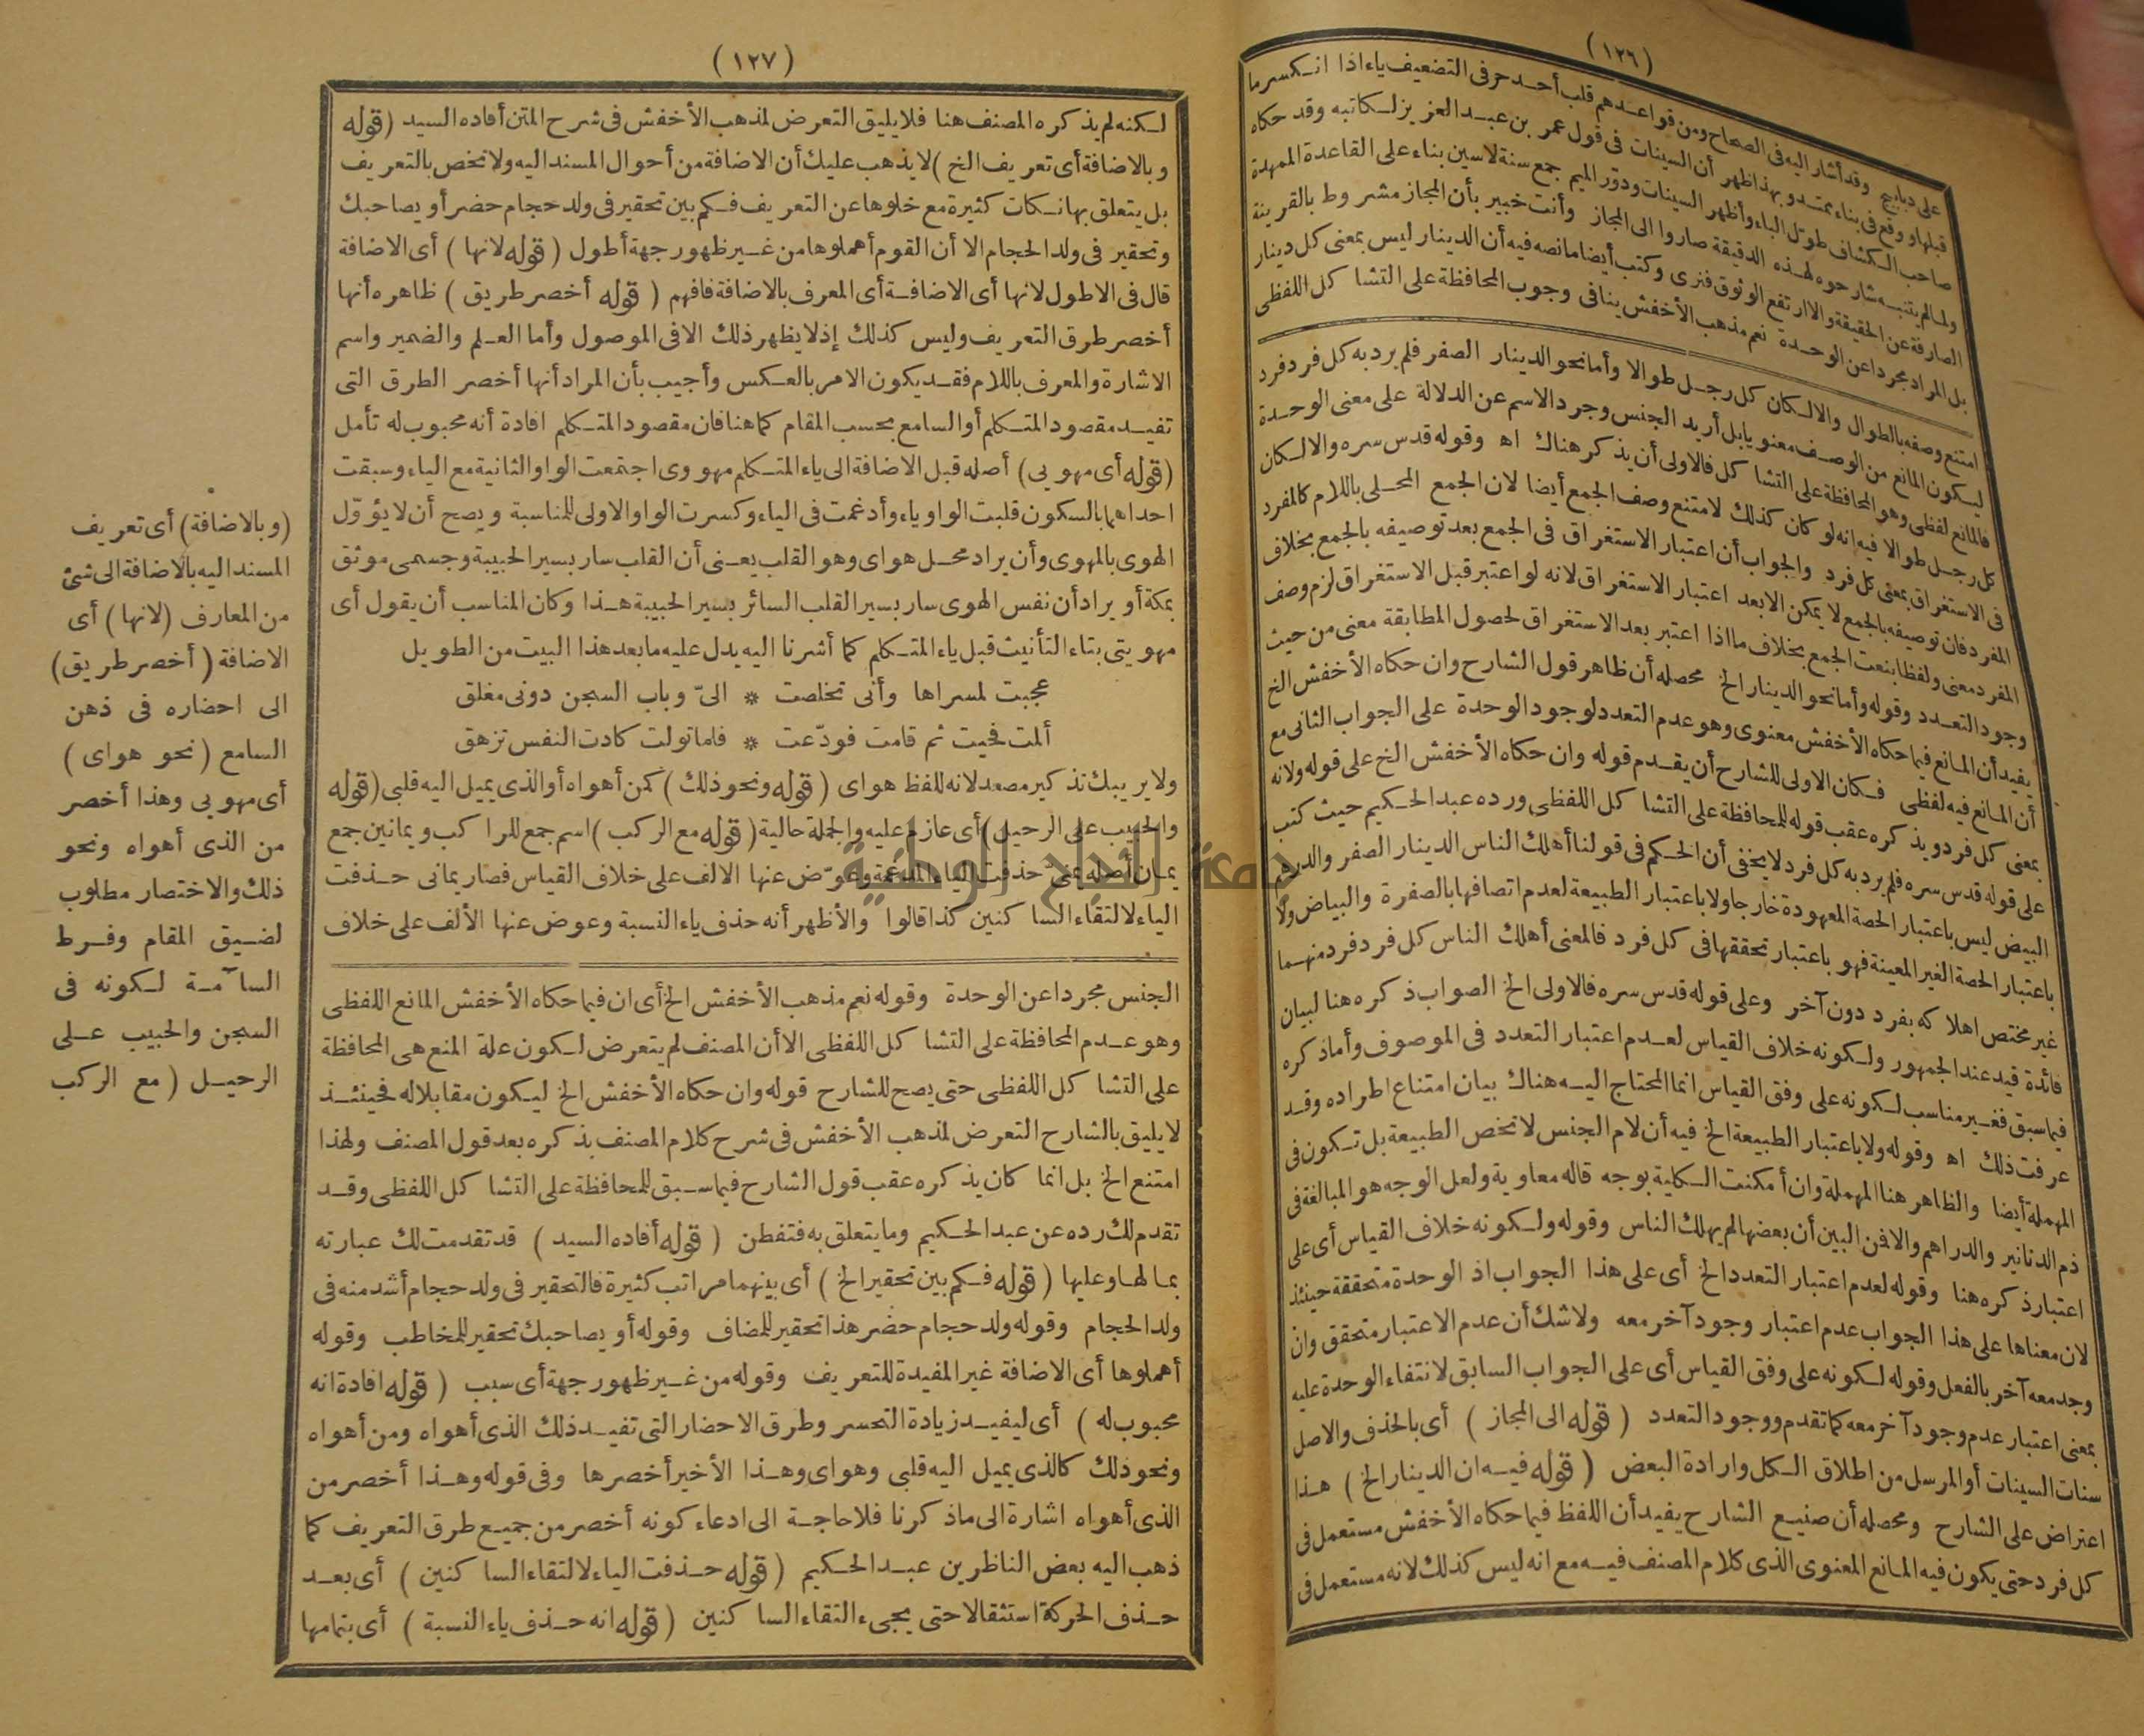 (١٢٦)
على دبابيج وقد أشار اليه فى الصحاح ومن قواعدهم قلب أحد حرفى التضعيف ياء اذا انكسر ما
قبلها ووقع فى بناء ممتد وبهذا ظهر أن السينات فى قول عمر بن عبد العزيز لكاتبه وقد حكاه
صاحب الكشاف طوّل الباء وأظهر السينات ودوّر الميم جمع سنة لاسين بناء على القاعدة الممهدة
ولما لم يتنبه شارحوه لهذه الدقيقة صاروا الى المجاز وأنت خبير بأن المجاز مشروط بالقرينة
الصارفة عن الحقيقة والا ارتفع الوثوق فنرى وكتب أيضا مانصه فيه أن الدينار ليس بمعنى كل دينار
بل المراد مجردا عن الوحدة نعم مذهب الأخفش ينافى وجوب المحافظة على التشاكل اللفظى
امتنع وصفه بالطوال والالكان كل رجل طوالا وأما نحو الدينار الصفر فلم يرد به كل فرد فرد
ليكون المانع من الوصف معنويا بل أريد الجنس وجرد الاسم عن الدلالة على معنى الوحدة
فالمانع لفظى وهو المحافظة على التشاكل فالاولى أن يذكر هناك اه وقوله قدس سره والالكان
كل رجل طوالا فيه انه لو كان كذلك لامتنع وصف الجمع أيضا لان الجمع المحلى باللام كالمفرد
فى الاستغراق بمعنى كل فرد والجواب أن اعتبار الاستغراق فى الجمع بعد توصيفه بالجمع بخلاف
المفرد فان توصيفه بالجمع لا يمكن الابعد اعتبار الاستغراق لانه لو اعتبر قبل الاستغراق لزم وصف
المفرد معنى ولفظا بنعت الجمع بخلاف مااذا اعتبر بعد الاستغراق لحصول المطابقة معنى من حيث
وجود التعدد وقوله وأما نحو الدينار الخ محصله أن ظاهر قول الشارح وان حكاه الأخفش الخ
يفيد أن المانع فيما حكاه الأخفش معنوى وهو عدم التعدد لوجود الوحدة على الجواب الثانى مع
أن المانع فيه لفظى فكان الاولى للشارح أن يقدم قوله وان حكاه الأخفش الخ على قوله ولانه
بمعنى كل فرد ويذكره عقب قوله للمحافظة على التشاكل اللفظى ورده عبد الحكيم حيث كتب
على قوله قدس سره فلم يرد به كل فرد لا يخفى أن الحكم فى قولنا أهلك الناس الدينار الصفر والدرهم
البيض ليس باعتبار الحصة المعهودة خارجا ولا باعتبار الطبيعة لعدم اتصافها بالصفرة والبياض ولا
باعتبار الحصة الغير المعينة فهو باعتبار تحققها فى كل فرد فالمعنى أهلك الناس كل فرد فرد منهما
غير مختص اهلاكه بفرد دون آخر وعلى قوله قدس سره فالاولى الخ الصواب ذكره هنا لبيان
فائدة قيد عند الجمهور ولكونه خلاف القياس لعدم اعتبار التعدد فى الموصوف وأما ذكره
فيما سبق فغير مناسب لكونه على وفق القياس انما المحتاج اليه هناك بيان امتناع اطراده وقد
عرفت ذلك اه وقوله ولا باعتبار الطبيعة الخ فيه أن لام الجنس لا تخص الطبيعة بل تكون فى
المهملة أيضا والظاهر هنا المهملة وان أمكنت الكلية بوجه قاله معاوية ولعل الوجه هو المبالغة فى
ذم الدنانير والدراهم والافمن البين أن بعضها لم يهلك الناس وقوله ولكونه خلاف القياس أى على
اعتبار ذكره هنا وقوله لعدم اعتبار التعدد الخ أى على هذا الجواب اذ الوحدة متحققة حينئذ
لان معناها على هذا الجواب عدم اعتبار وجود آخر معه ولا شك أن عدم الاعتبار متحقق وان
وجد معه آخر بالفعل وقوله لكونه على وفق القياس أى على الجواب السابق لانتفاء الوحدة عليه
بمعنى اعتبار عدم وجود آخر معه كما تقدم ووجود التعدد (قوله الى المجاز) أى بالحذف والاصل
سنات السينات أو المرسل من اطلاق الكل وارادة البعض (قوله فيه ان الدينار الخ) هذا
اعتراض على الشارح ومحصله أن صنيع الشارح يفيد أن اللفظ فيما حكاه الأخفش مستعمل فى
كل فرد حتى يكون فيه المانع المعنوى الذى كلام المصنف فيه مع انه ليس كذلك لانه مستعمل فى
(١٢٧)
لكنه لم يذكره المصنف هنا فلا يليق التعرض لمذهب الأخفش فى شرح المتن أفاده السيد (قوله
وبالاضافة أى تعريف الخ) لا يذهب عليك أن الاضافة من أحوال المسند اليه ولا تخص بالتعريف
بل يتعلق بها نكات كثيرة مع خلوها عن التعريف فكم بين تحقير فى ولد حجام حضر أو يصاحبك
وتحقير فى ولد الحجام الا أن القوم أهملوها من غير ظهور جهة أطول (قوله لانها) أى الاضافة
قال فى الاطول لانها أى الاضافة أى المعرف بالاضافة فافهم (قوله أخصر طريق) ظاهره أنها
أخصر طرق التعريف وليس كذلك إذ لا يظهر ذلك الا فى الموصول وأما العلم والضمير واسم
الاشارة والمعرف باللام فقد يكون الامر بالعكس وأجيب بأن المراد أنها أخصر الطرق التى
تفيد مقصود المتكلم أو السامع بحسب المقام كما هنا فان مقصود المتكلم افادة أنه محبوب له تأمل
(قوله أى مهويى) أصله قبل الاضافة الى ياء المتكلم مهووى اجتمعت الواو الثانية مع الياء وسبقت
احداهما بالسكون قلبت الواو ياء وأدغمت فى الياء وكسرت الواو الاولى للمناسبة ويصح أن لا يؤوّل
الهوى بالمهوى وأن يراد محل هواى وهو القلب يعنى أن القلب سار بسير الحبيبة وجسمى موثق
بمكة أو يراد أن نفس الهوى سار بسير القلب السائر بسير الحبيبة هذا وكان المناسب أن يقول أى
مهويتى بتاء التأنيث قبل ياء المتكلم كما أشرنا اليه يدل عليه ما بعد هذا البيت من الطويل
عجبت لمسراها وأنى تخلصت * الىّ وباب السجن دونى مغلق
ألمت فحيت ثم قامت فودّعت * فلما تولت كادت النفس تزهق
ولا يريبك تذكير مصعد لانه للفظ هواى (قوله ونحو ذلك) كمن أهواه أو الذى يميل اليه قلبى (قوله
والحبيب على الرحيل) أى عازم عليه والجملة حالية (قوله مع الركب) اسم جمع للراكب ويمانين جمع
يمان أصله يمنى حذفت الياء المدغمة وعوّض عنها الالف على خلاف القياس فصار يمانى حذفت
الياء لالتقاء الساكنين كذا قالوا والأظهر أنه حذف ياء النسبة وعوض عنها الألف على خلاف
الجنس مجردا عن الوحدة وقوله نعم مذهب الأخفش الخ أى ان فيما حكاه الأخفش المانع اللفظى
وهو عدم المحافظة على التشاكل اللفظى الا أن المصنف لم يتعرض لكون علة المنع هى المحافظة
على التشاكل اللفظى حتى يصح للشارح قوله وان حكاه الأخفش الخ ليكون مقابلا له فحينئذ
لا يليق بالشارح التعرض لمذهب الأخفش فى شرح كلام المصنف بذكره بعد قول المصنف ولهذا
امتنع الخ بل انما كان يذكره عقب قول الشارح فيما سبق للمحافظة على التشاكل اللفظى وقد
تقدم لك رده عن عبد الحكيم وما يتعلق به فتفطن (قوله أفاده السيد) قد تقدمت لك عبارته
بما لها وعليها (قوله فكم بين تحقير الخ) أى بينهما مراتب كثيرة فالتحقير فى ولد حجام أشد منه فى
ولد الحجام وقوله ولد حجام حضر هذا تحقير للمضاف وقوله أو يصاحبك تحقير للمخاطب وقوله
أهملوها أى الاضافة غير المفيدة للتعريف وقوله من غير ظهور جهة أى سبب (قوله افادة انه
محبوب له) أى ليفيد زيادة التحسر وطرق الاحضار التى تفيد ذلك الذى أهواه ومن أهواه
ونحو ذلك كالذى يميل اليه قلبى وهواى وهذا الأخير أخصرها وفى قوله وهذا أخصر من
الذى أهواه اشارة الى ماذكرنا فلا حاجة الى ادعاء كونه أخصر من جميع طرق التعريف كما
ذهب اليه بعض الناظرين عبد الحكيم (قوله حذفت الياء لالتقاء الساكنين) أى بعد
حذف الحركة استثقالا حتى يجىء التقاء الساكنين (قوله انه حذف ياء النسبة) أى بتمامها
(وبالاضافة) أى تعريف
المسند اليه بالاضافة الى شئ
من المعارف (لانها) أى
الاضافة (أخصر طريق)
الى احضاره فى ذهن
السامع (نحو هواى)
أى مهويى وهذا أخصر
من الذى أهواه ونحو
ذلك والاختصار مطلوب
لضيق المقام وفرط
السآمة لكونه فى
السجن والحبيب على
الرحيل (مع الركب
جامعة النجاح الوطنية